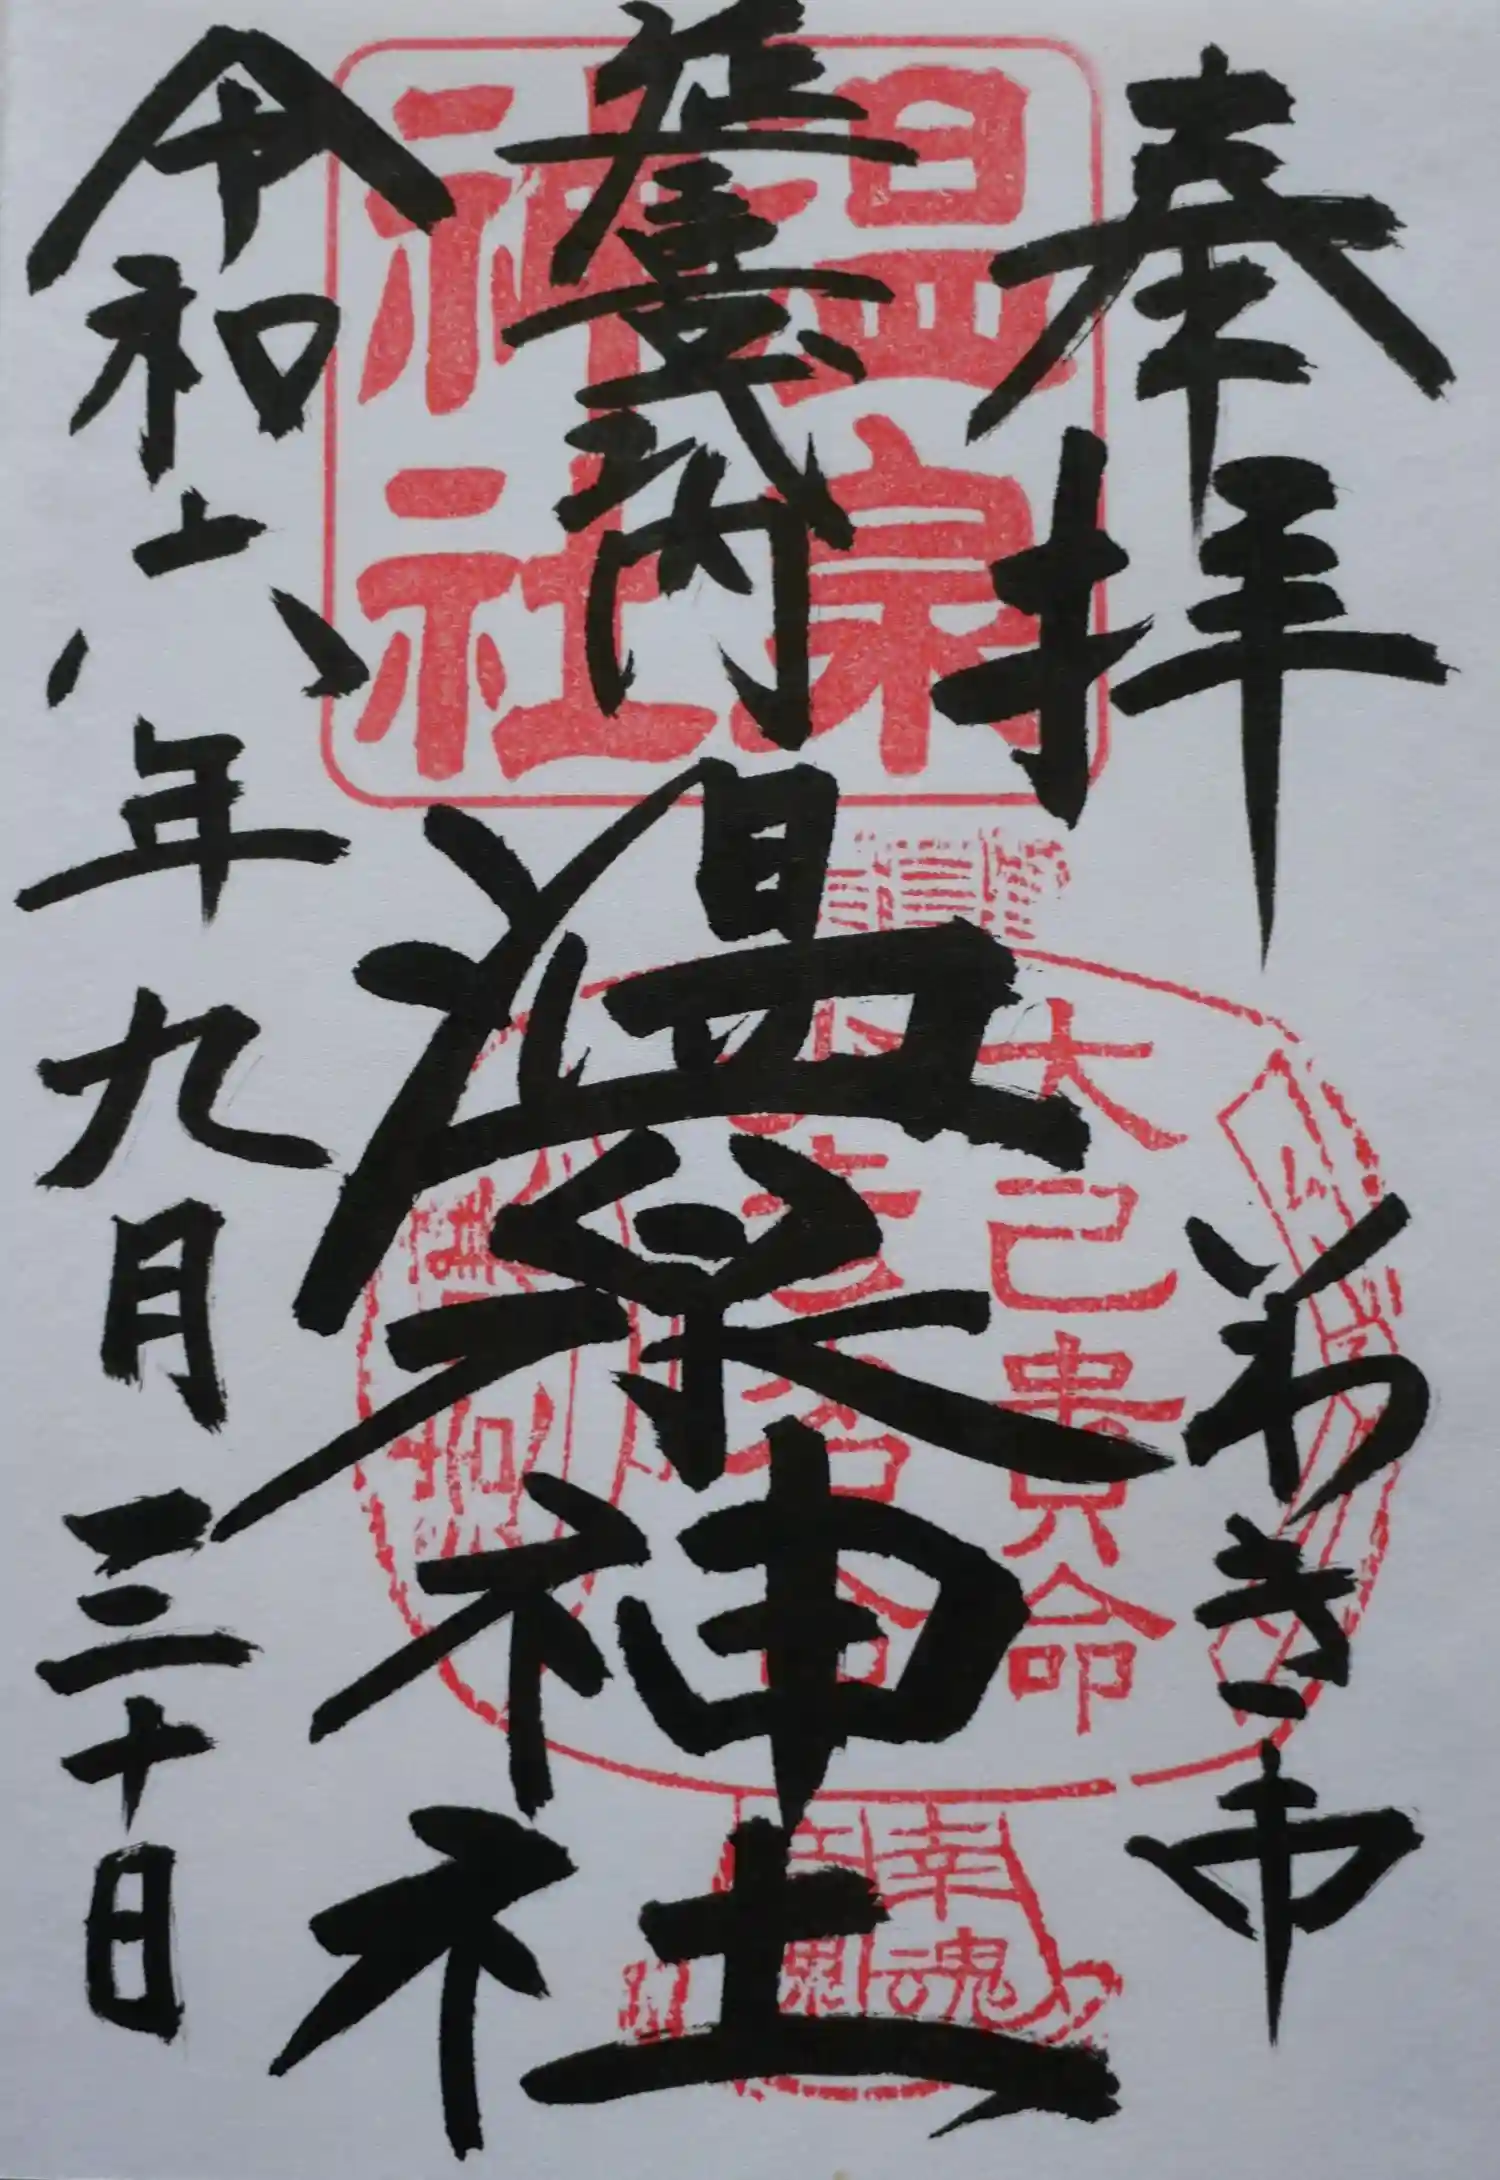 奉拝
いわき市
延喜式内
温泉神社
令和六年九月三十日
温泉
神社
大己貴命
幸魂